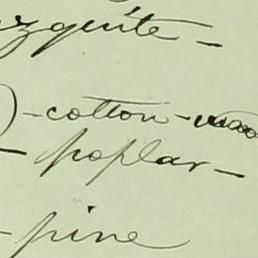 ezquite -
) - cotton -
- poplar -
- pine